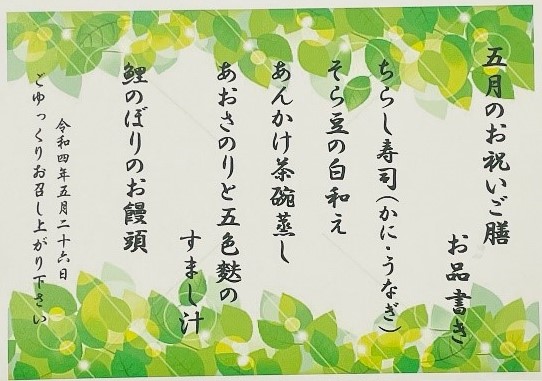 五月のお祝いご膳
お品書き
ちらし寿司(かに・うなぎ)
そら豆の白和え
あんかけ茶碗蒸し
あおさのりと五色麩の
すまし汁
鯉のぼりのお饅頭
令和四年五月二十六日
ごゆっくりお召し上がり下さい